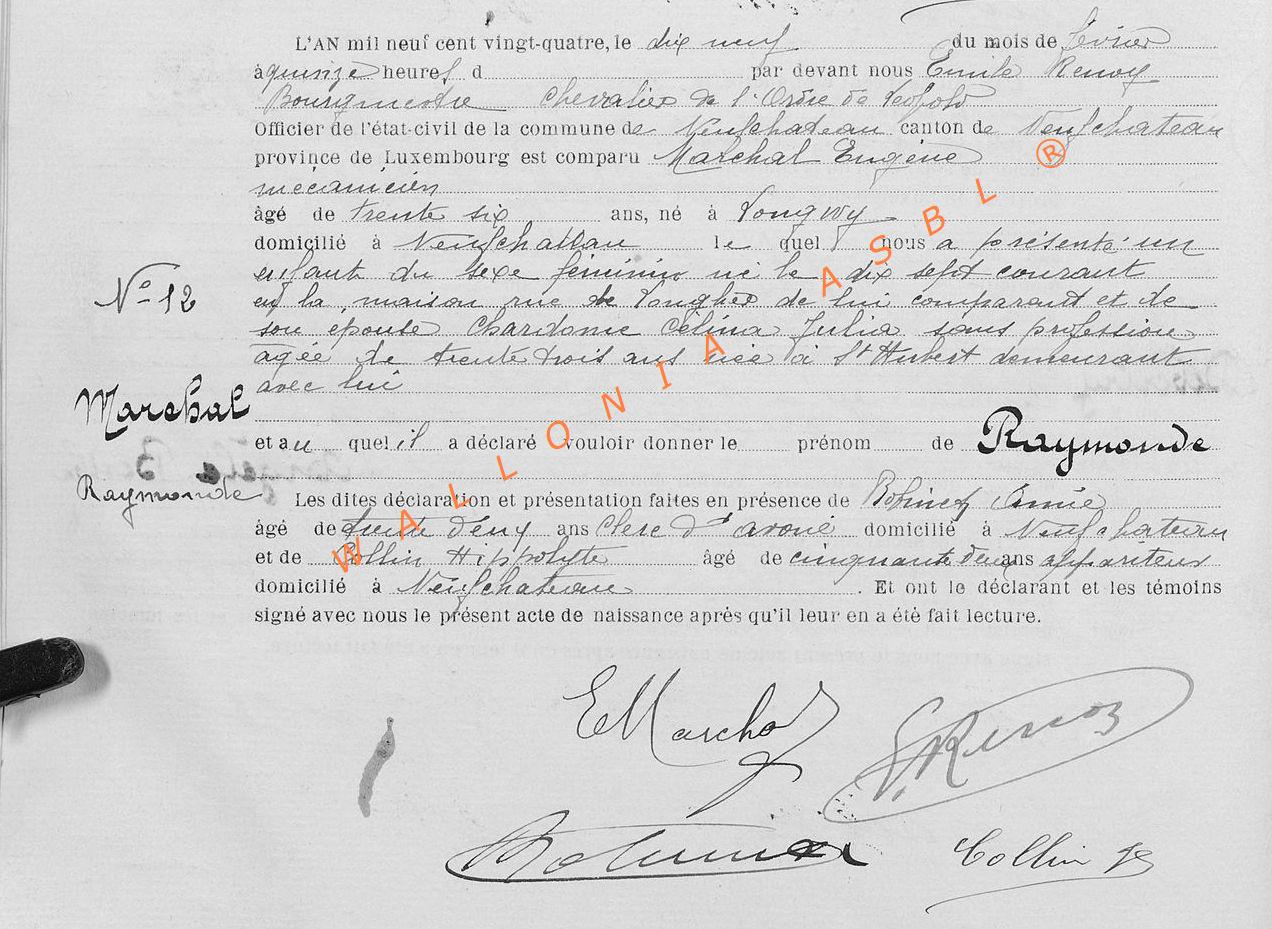 L'AN mil neuf cent vingt-quatre, le dix neuf du mois de février
à quinze heures d par devant nous Emile Renoy
Bourgmestre Chevalier de l'Ordre de Léopold
Officier de l'état-civil de la commune de Neufchateau canton de Neufchateau
province de Luxembourg est comparu Marchal Eugène
mécanicien
âgé de trente six ans, né à Longwy
domicilié à Neufchateau le quel nous a présenté un
enfant du sexe féminin né le dix sept courant
en la maison rue de de lui comparant et de
son épouse Chardome Célina Julia sans profession
agée de trente trois ans née à St Hubert demeurant
avec lui
N° 12
Marchal
Raymonde
et au quel il a déclaré vouloir donner le prénom de Raymonde
Les dites déclaration et présentation faites en présence de Robinet
âgé de trente deux ans clerc d'avoué domicilié à Neufchateau
et de Collin Hippolyte âgé de cinquante deux ans appariteur
domicilié à Neufchateau. Et ont le déclarant et les témoins
signé avec nous le présent acte de naissance après qu'il leur en a été fait lecture.
EMarchal
E. Renoy
Robinet
Collin H
WALLONIA ASBL ®